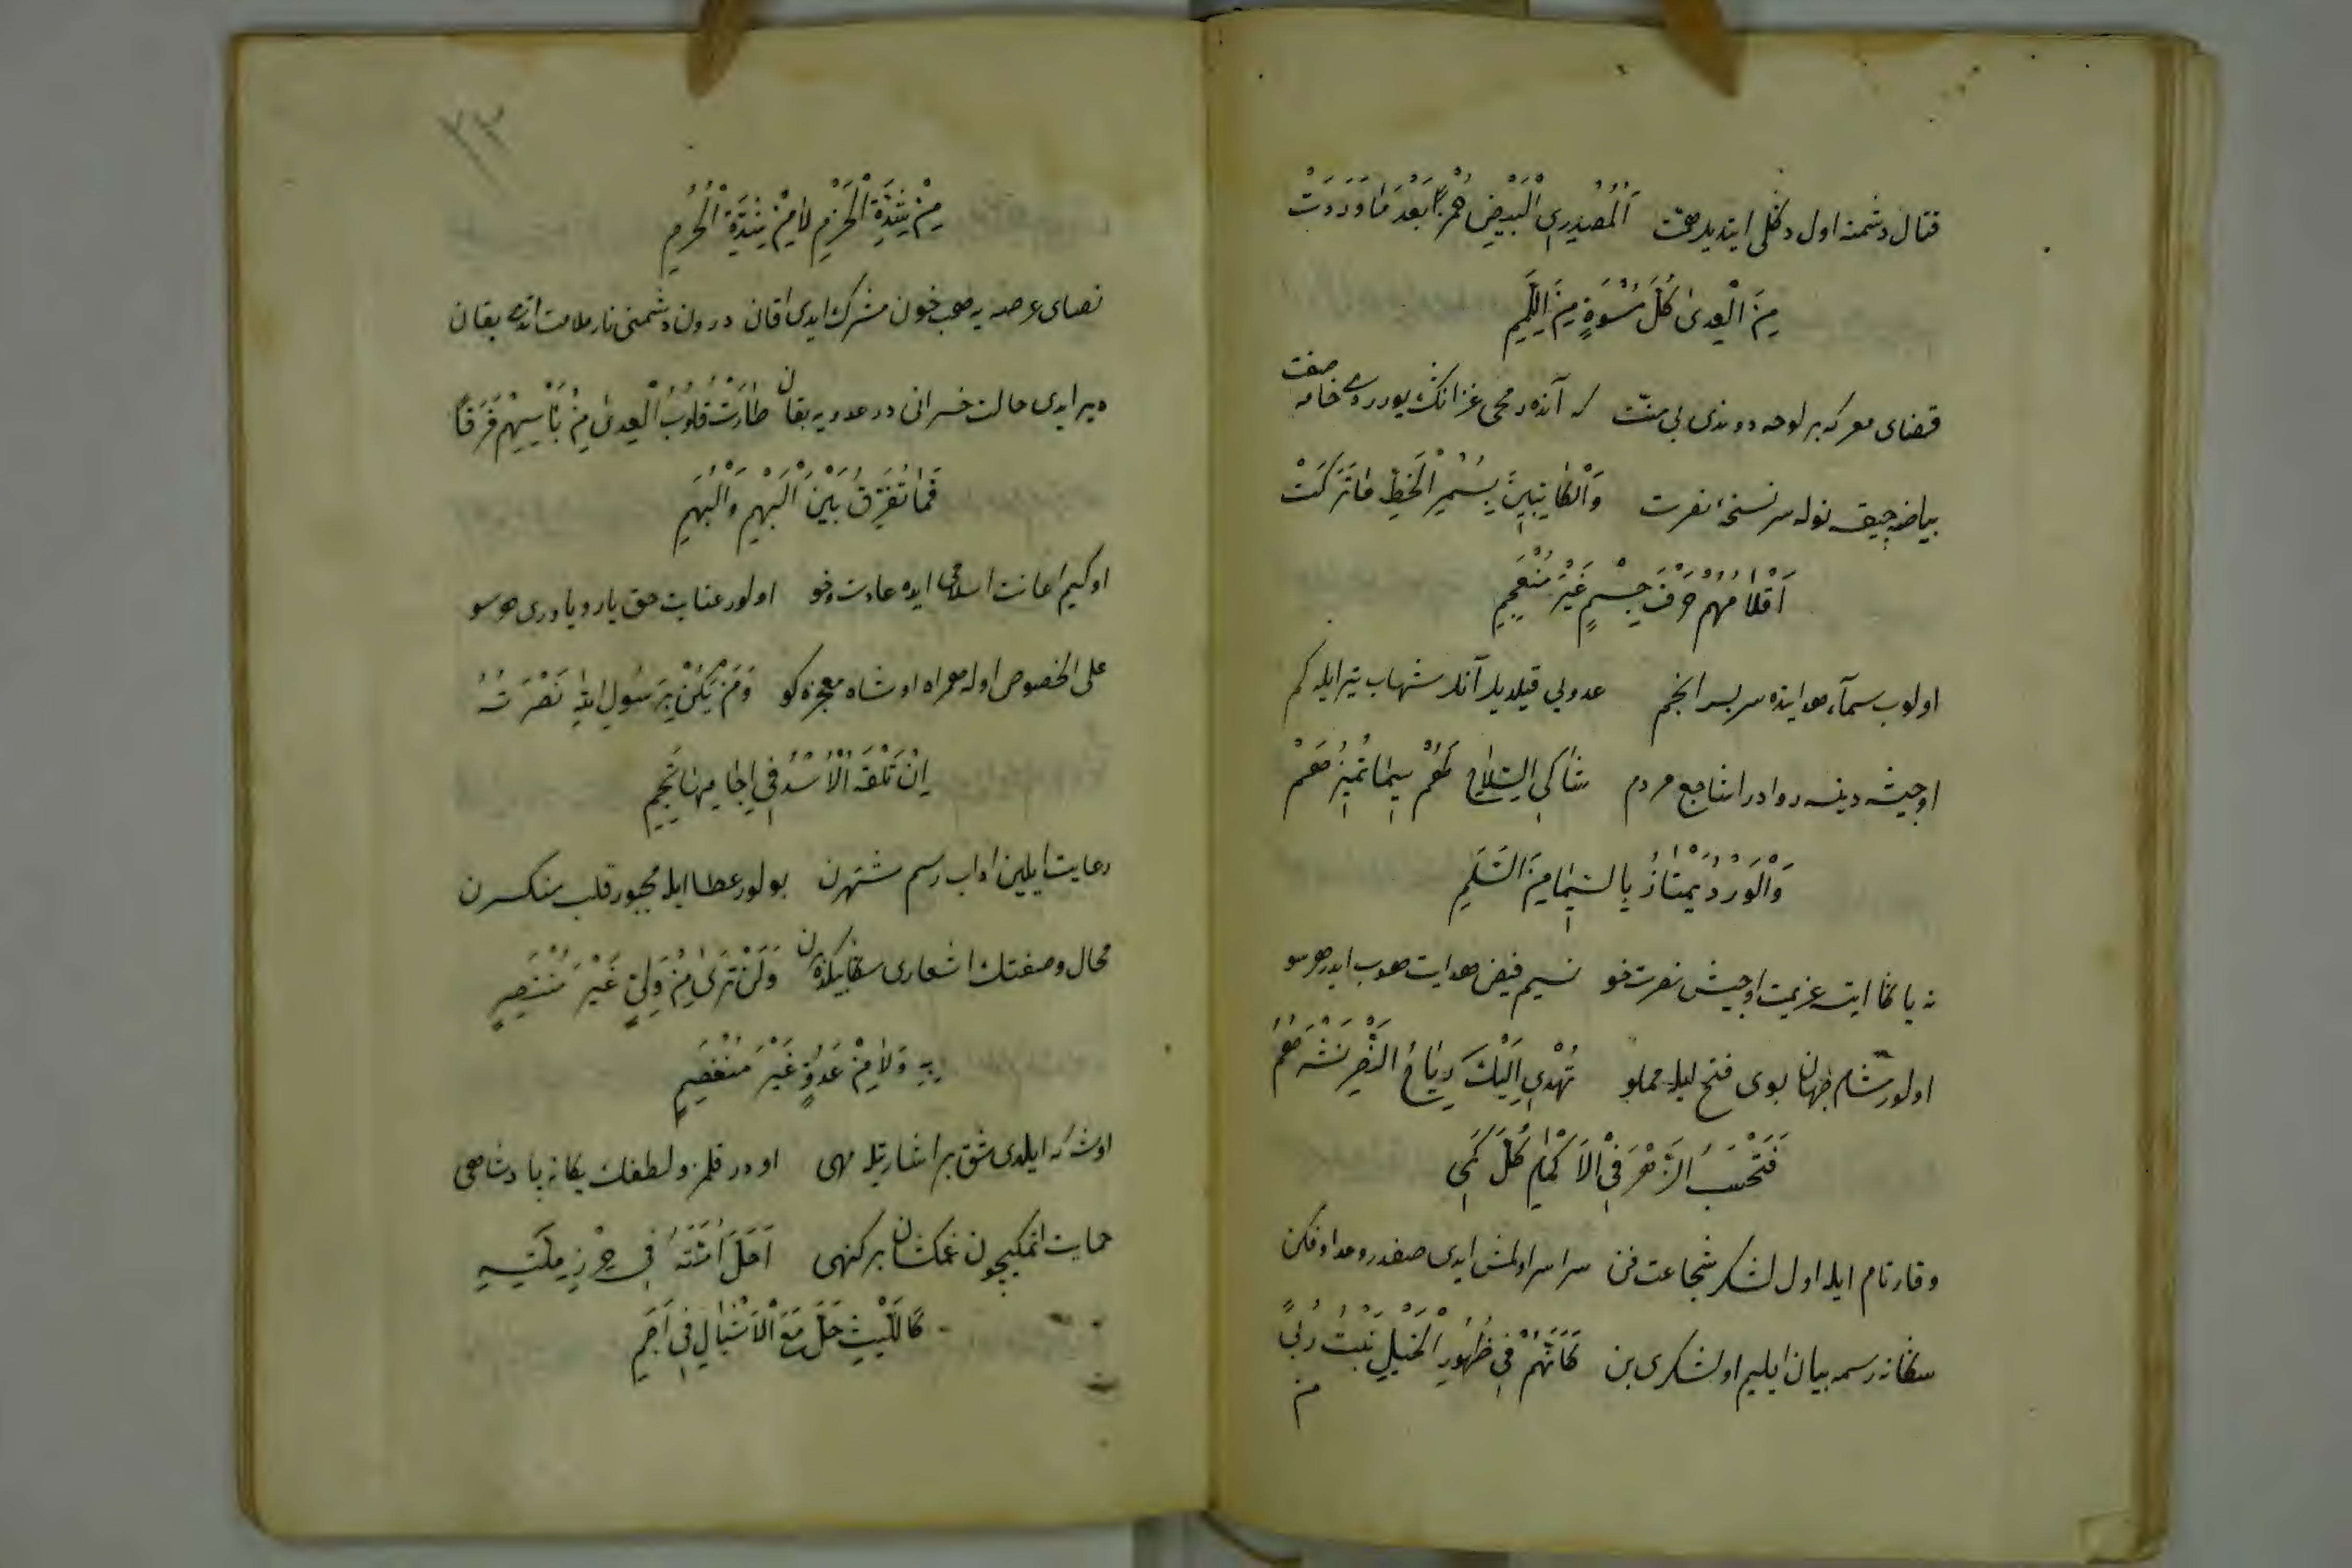 قتال دشمنه اول دكلى ايتديلر همت اَلْمُصْدِرِي الْبَيْضِ حُمْرًا بَعْدَ مَا وَرَدَتْ
مِنَ الْعِدىٰ كُلَّ مُسْوَدٍّ مِنَ اللِّمَمِ
قضاى معركه بر لوحه دوندى بى منت كه آنده رمحى غزانك يورردى خامه صفت
بياضه چيقسه نوله سر نسخهٔ نصرت وَالْكَاتِبِينَ بِسُمْرِ الْخَطِّ مَا تَرَكَتْ
اَقْلَامُهُمْ حَرْفَ جِسْمٍ غَيْرَ مُنْعَجِمِ
اولوب سمآء هدايتده سربسر انجم عدويى قيلديلر آنلر شهاب تير ايله كم
او جيشه دينسه روادر اشاجع مردم شَاكِي السِّلَاحِ لَهُمْ سِيمَا تُمَيِّزُهُمْ
وَالْوَرْدُ يَمْتَازُ بِالسِّيمَا مِنَ السَّلَمِ
نه يانكا ايتسه عزيمت او جيش نصرت خو نسيم فيض هدايت هبوب ايدر هر سو
اولور مشام جهان بوى فتح ايله مملو تُهْدِي اِلَيْكَ رِيَاحُ النَّصْرِ نَشْرَهُمُ
فَتَحْسَبُ الزَّهْرَ فِي الْاَكْمَامِ كُلَّ كَمِي
وقار تام ايله اول لشكر شجاعت فن سراسر اولمش ايدى صفدر و عدا وفكن
سكا نه رسمه بيان ايليم او لشكرى بن كَاَنَّهُمْ فِي ظُهُورِ الْخَيْلِ نَبْتُ رُبًى
من
٢٣
مِنْ شِدَّةِ الْحَزْمِ لَا مِنْ شِدَّةِ الْحُزُمِ
فضاى عرصه يه هب خون مشرك ايدى اقان درون دشمنى نار ملامت ايدى يقان
دير ايدى حالت خسرانى در عدويه بقان طَارَتْ قُلُوبُ الْعِدىٰ مِنْ بَأْسِهِمْ فَرَقًا
فَمَا تُفَرِّقُ بَيْنَ الْبَهْمِ وَالْبُهَمِ
او كيم اعانت اسلامى ايده عادت و خو اولور عنايت حق يار و ياورى هر سو
على الخصوص اوله همراه او شاه معجزه كو وَمَنْ يَكُنْ بِرَسُولِ اللهِ نَصْرَتُهُ
اِنْ تَلْقَهُ الْاُسْدُ فِي اٰجَامِهَا تَجِمِ
رعايت ايلين اداب رسم مشتهرن بولور عطا ايله مجبور قلب منكسرن
محال وصفتك اشعارى سكا يكذرن وَلَنْ تَرىٰ مِنْ وَلِيٍّ غَيْرَ مُنْتَصِرٍ
بِهِ وَلَا مِنْ عَدُوٍّ غَيْرَ مُنْقَصِمِ
او شه كه ايلدى شق بر اشارتله مهى او در قلمرو لطفك يكانه پادشاهى
حمايت اتمكيچون غمكشان بركنهى اَحَلَّ اُمَّتَهُ فِي حِرْزِ مِلَّتِهِ
كَاللَّيْثِ حَلَّ مَعَ الْاَشْبَالِ فِي اَجَمِ